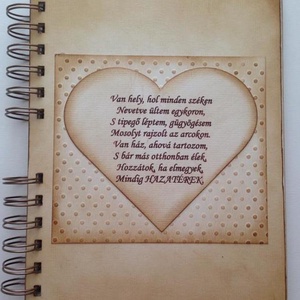 Van hely, hol minden széken
Nevetve ültem egykoron,
S tipegő léptem, gügyögésem
Mosolyt rajzolt az arcokon.
Van ház, ahová tartozom,
S bár más otthonban élek,
Hozzátok, ha elmegyek,
Mindig HAZATÉREK.